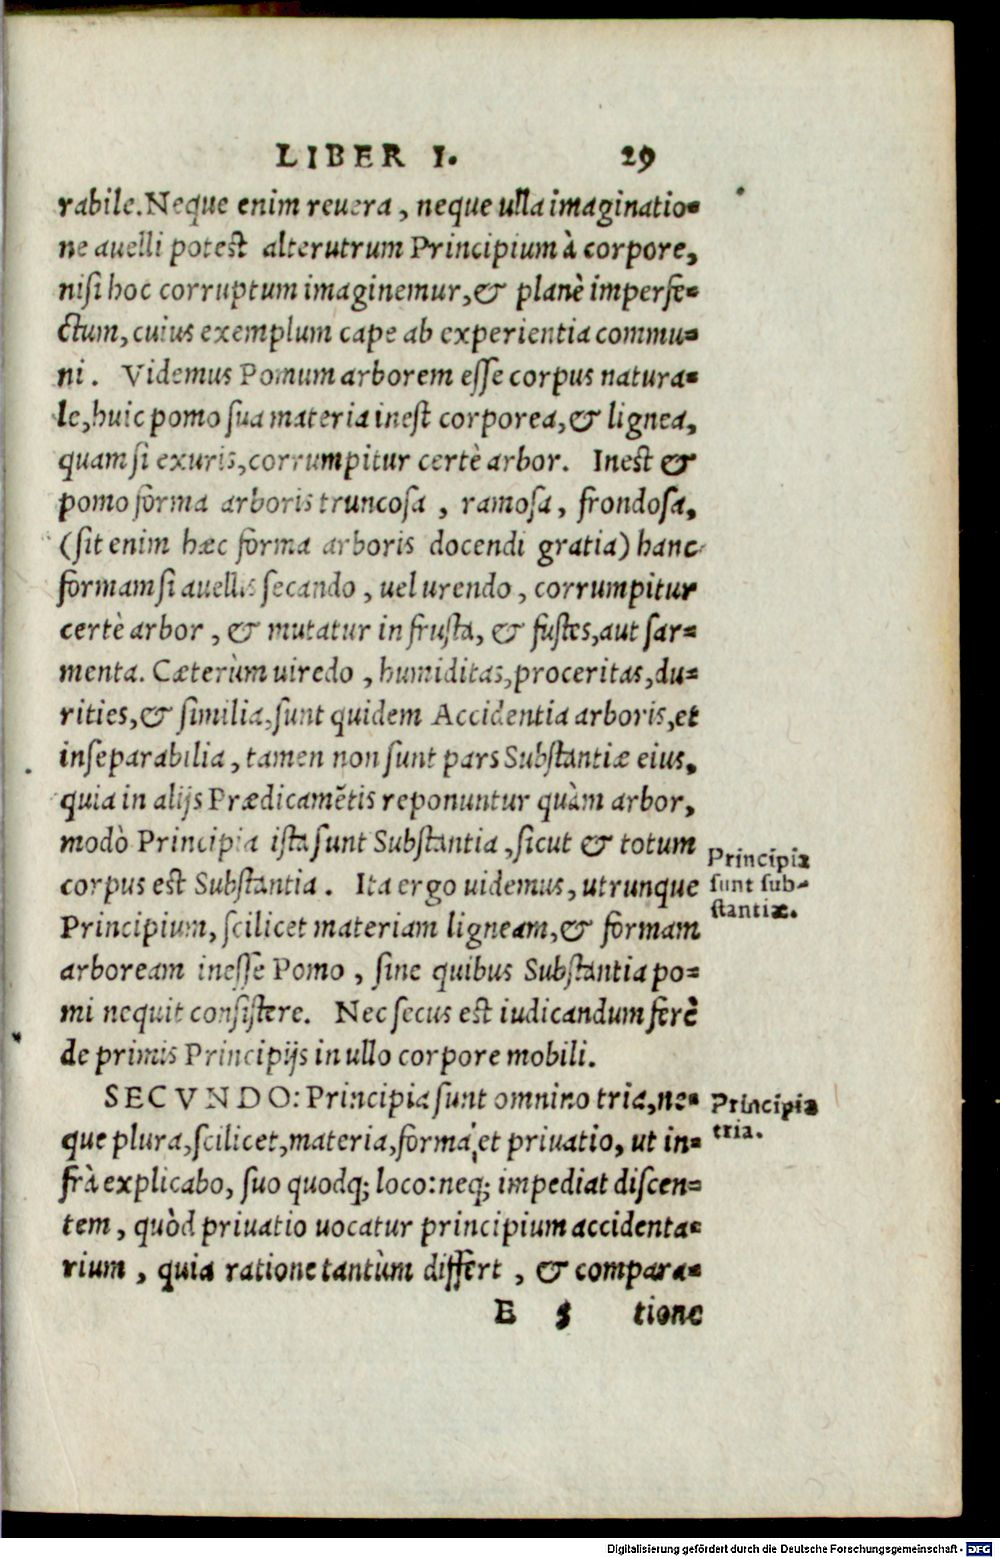 LIBER I. 29
rabile. Neque enim reuera, neque ulla imaginatio-
ne auelli potest alterutrum Principium à corpore,
nisi hoc corruptum imaginemur, & planè imperfe-
ctum, cuius exemplum cape ab experientia commu-
ni. Videmus Pomum arborem esse corpus natura-
le, huic pomo sua materia inest corporea, & lignea,
quam si exuris, corrumpitur certè arbor. Inest &
pomo forma arboris truncosa, ramosa, frondosa,
(sit enim hæc forma arboris docendi gratia) hanc
formam si auellis secando, uel urendo, corrumpitur
certè arbor, & mutatur in frusta, & fustes, aut sar-
menta. Cæterùm uiredo, humiditas, proceritas, du-
rities, & similia, sunt quidem Accidentia arboris, et
inseparabilia, tamen non sunt pars Substantiæ eius,
quia in alijs Prædicamẽtis reponuntur quàm arbor,
modò Principia ista sunt Substantia, sicut & totum
corpus est Substantia. Ita ergo uidemus, utrunque
Principium, scilicet materiam ligneam, & formam
arboream inesse Pomo, sine quibus Substantia po-
mi nequit consistere. Nec secus est iudicandum ferè
de primis Principijs in ullo corpore mobili.
Principia
sunt sub-
stantiæ.
SECVNDO: Principia sunt omnino tria, ne-
que plura, scilicet, materia, forma, et priuatio, ut in-
frà explicabo, suo quodq; loco: neq; impediat discen-
tem, quòd priuatio uocatur principium accidenta-
rium, quia ratione tantùm differt, & compara-
Principia
tria.
E 5 tione
Digitalisierung gefördert durch die Deutsche Forschungsgemeinschaft - DFG